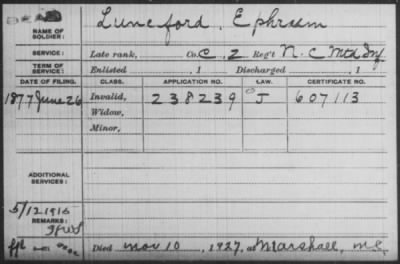 NAME OF SOLDIER: Lunsford, Ephraim
SERVICE: Late rank, Co. C, 2 Reg't N.C. Mtd Inf
TERM OF SERVICE: Enlisted , 1 Discharged , 1
DATE OF FILING. CLASS. APPLICATION NO. LAW. CERTIFICATE NO.
1877 June 26 Invalid, 238239 J 607113
Widow,
Minor,
ADDITIONAL SERVICES:
5/12 1916
REMARKS:
Died Nov 10, 1927, at Marshall, N.C.